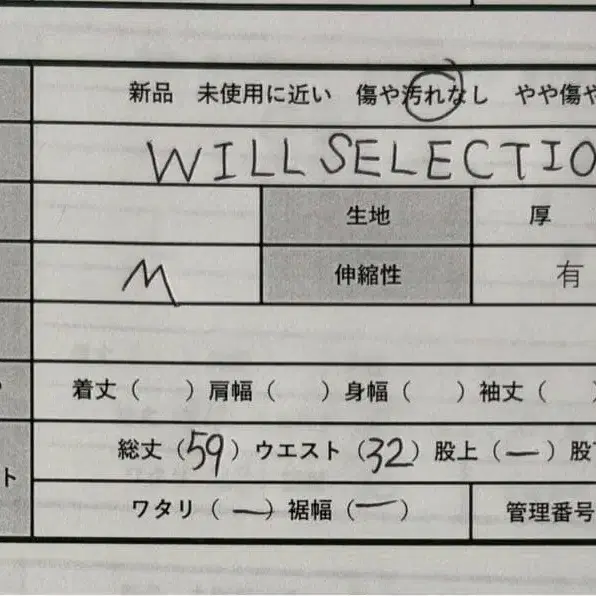 新品 未使用に近い 傷や汚れなし やや傷や
WILL SELECTIO
生地 厚
M 伸縮性 有
着丈( )肩幅( )身幅( )袖丈( )
総丈(59)ウエスト(32)股上(ー)股下
ト
ワタリ(ー)裾幅(ー) 管理番号